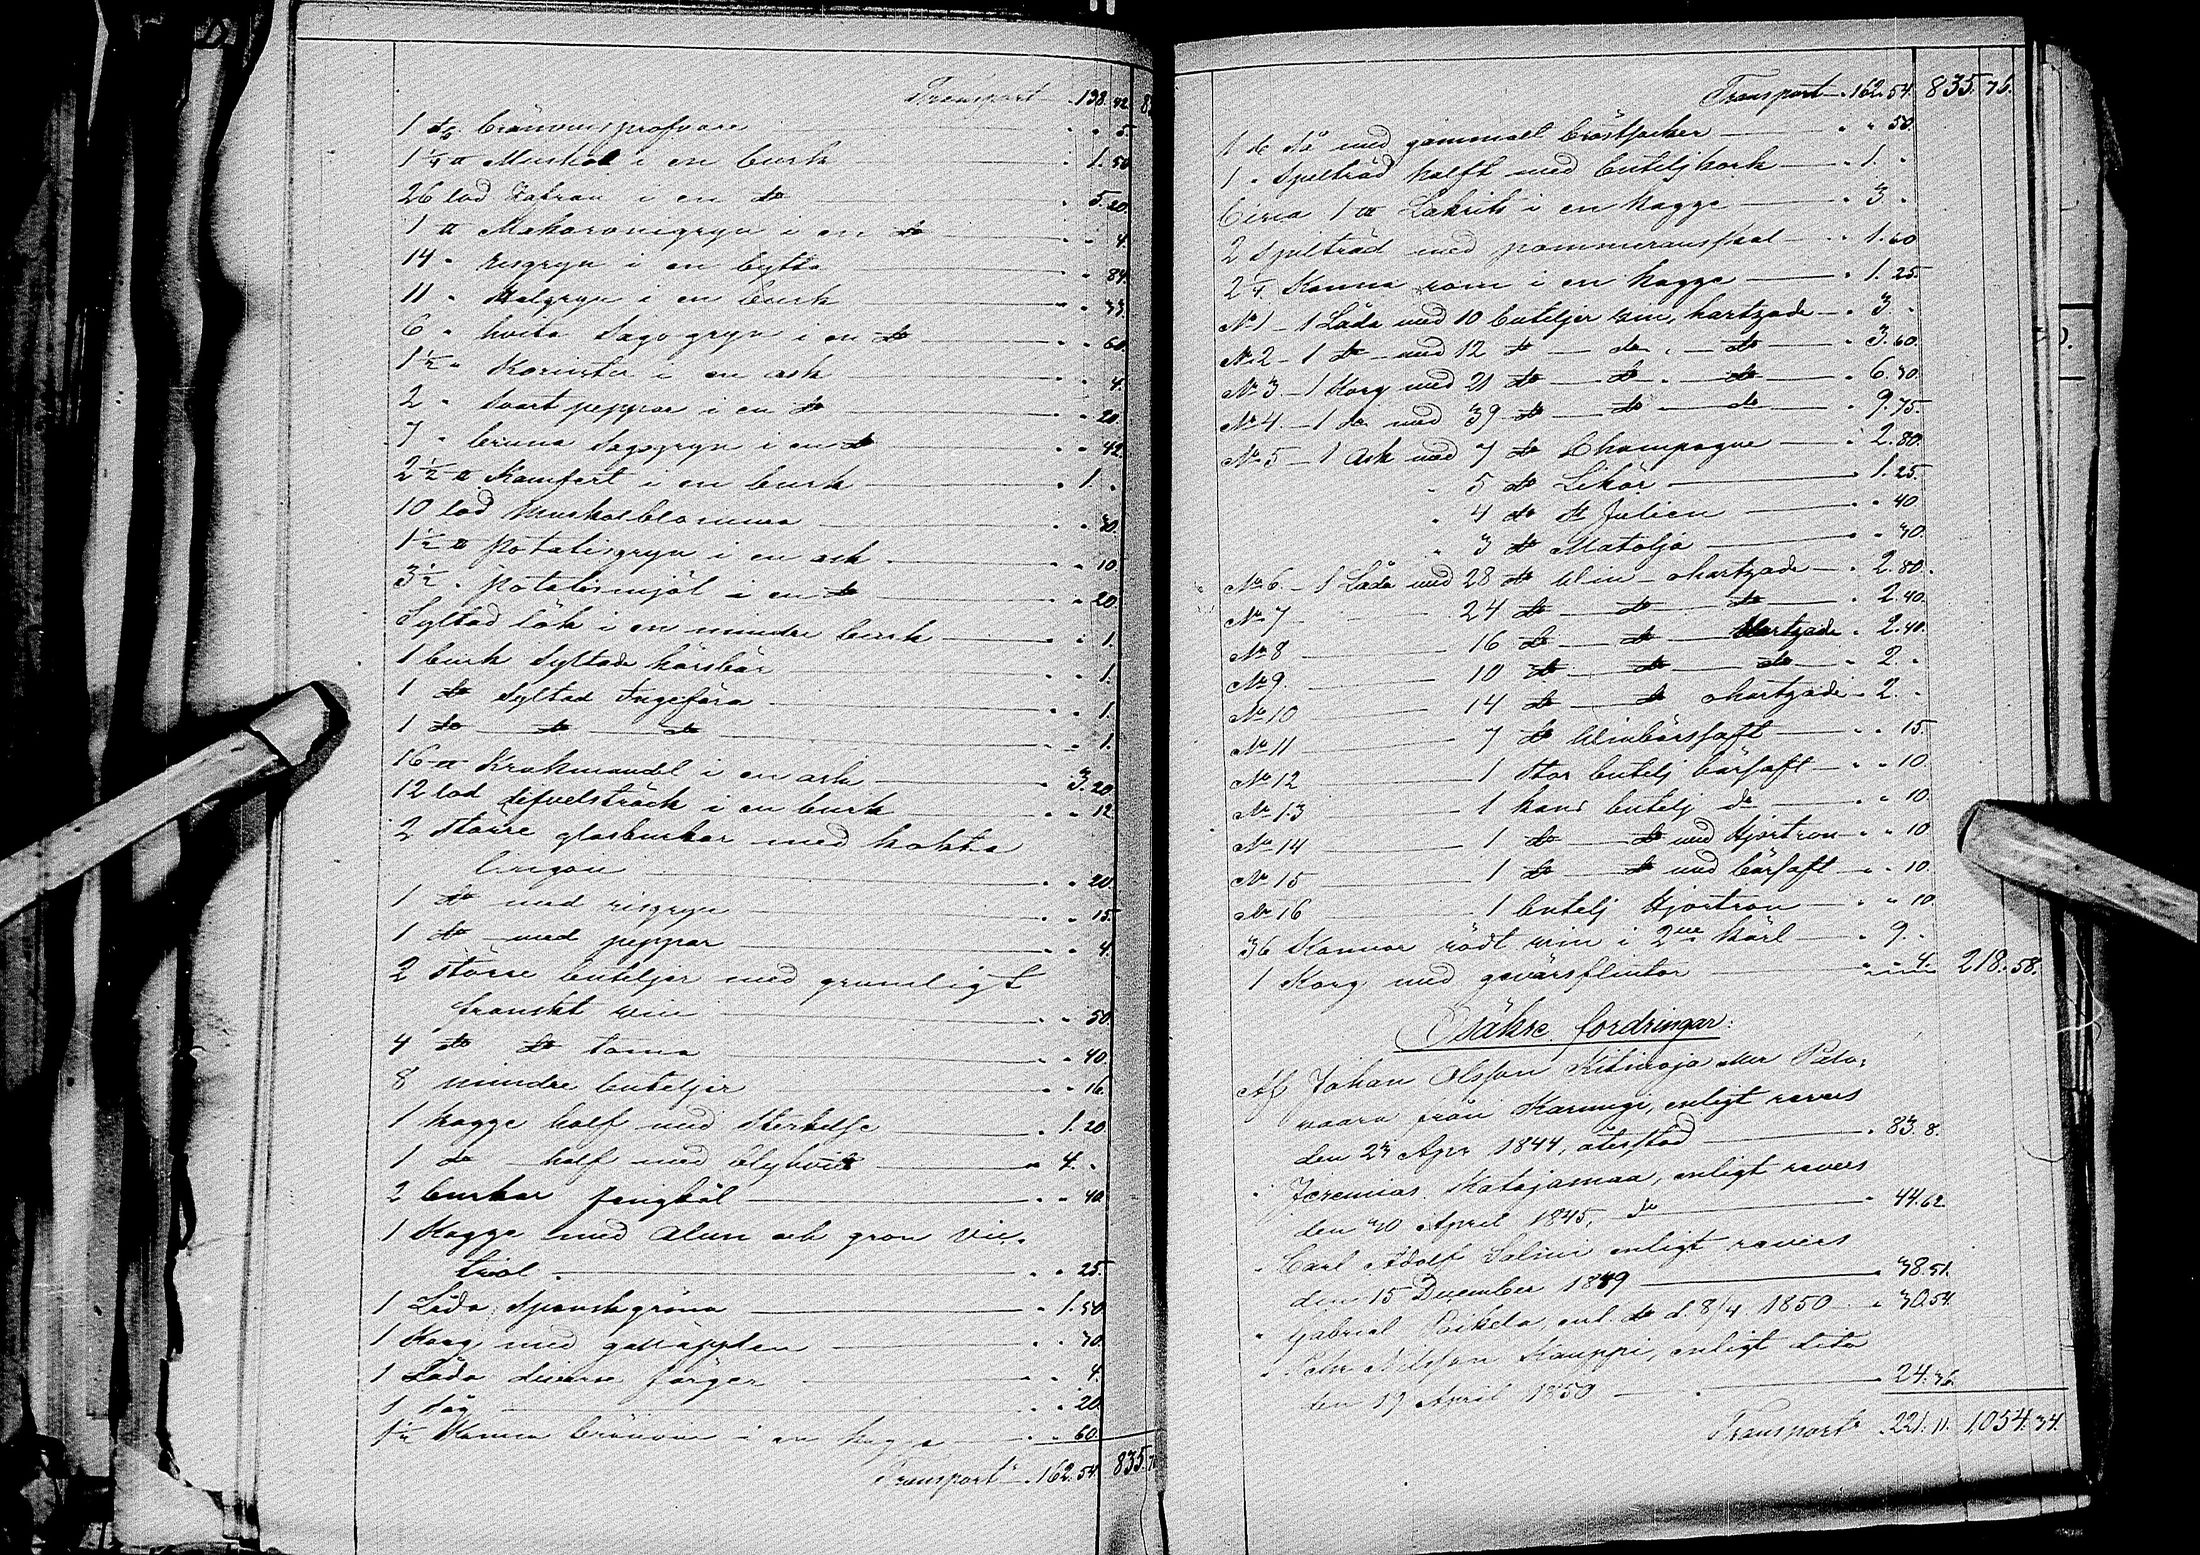 Transport 138. 42. 83
1 do bränvinsprofvare " " 5.
1 1/4 ℔ Muskot i en burk " 1. 50
26 lod Zafran i en do " 5. 20.
1 ℔ Makaronigryn i en do " " 4.
14 " risgryn i en bytta " " 84.
11 " Malgryn i en burk " " 33.
6 " hvita Sagogryn i en do " " 60.
1 1/2 " Korinter i en ask " " 4.
2 " Svart peppar i en do " " 20.
7 " bruna Sagogryn i en do " " 42.
2 1/2 ℔ Kamfert i en burk " 1. "
10 lod Muskotblomma " " 30.
1 1/2 ℔ Potatisgryn i en ask " " 10
3 1/2 " potatismjöl i en do " " 20.
Syltad lök i en mindre burk " " 1.
1 burk Syltade körsbär " " 1.
1 do Syltad Ingefära " " 1.
1 do do do " " 1.
16 ℔ Krakmandel i en ask " 3. 20.
12 lod difvelsträck i en burk " " 12
2 större glasburkar med kokta
lingon " " 20.
1 do med risgryn " " 15.
1 do med peppar " " 4.
2 större buteljer med grumligt
franskt vin " " 50.
4 do do toma " " 40.
8 mindre buteljer " " 16.
1 kagge half med Sterkelse " 1. 20
1 do half med blyhvitt " 4. "
2 burkar fengkål " " 40.
1 Kagge med Alun och grön Vic-
triol " " 25.
1 Låda Spanskgröna " 1. 50.
1 Korg med galläpplen " " 30.
1 Låda diverse färger " " 4.
1 såg " " 20.
1 1/2 Kanna bränvin i en kagge " " 60.
Transport 162. 54. 835. 7
Transport 162. 54. 835. 76.
1 do Så med gammalt bröstsocker " " 50.
1 " Spelträd halft med buteljkork " 1. "
Circa 1 ℔ Lakrits i en kagge " 3 "
2 Spelträd med pommeransskal " 1. 60
2 1/4 Kanna rom i en kagge " 1. 25.
No 1 - 1 Låda med 10 buteljer vin, hartzade " 3. "
No 2 - 1 do med 12 do do " do " 3. 60.
No 3. - 1 Korg med 21 do do " do " 6. 30.
No 4. - 1 do med 39 do do do " 9. 75.
No 5 - 1 Ask med 7 do Champagne " 2. 80.
" 5 do Likör " 1. 25.
" 4 do St Julien " " 40
" 3 do Matolja " " 30.
No 6 - 1 Låda med 28 do Win - ohartzade " 2. 80.
No 7 24 do do do " 2. 40.
No 8 16 do do Hartzade " 2. 40.
No 9. 10 do do do " 2. "
No 10 14 do do ohartzade " 2. "
No 11 7 do Winbärssaft " " 15.
No 12 1 Stor butelj bärsaft " " 10
No 13 1 hand butelj do " " 10.
No 14 1 do do med Hjortron " " 10
No 15 1 do do med bärsaft " " 10.
No 16 1 butelj Hjortron " " 10
36 Kannor rödt vin i 2ne kärl " 9. "
1 Korg med gevärsflintor " " 4. 218. 58.
Osäkre fordringar:
Af Johan Olsson Kitinoja eller Palo-
vaara från Karungi, enligt revers
den 23 Apr 1844, återstod " 83. 8.
" Jeremias Katajamaa, enligt revers
den 30 April 1845, do " 44. 62.
" Carl Adolf Salini enligt revers
den 15 December 1849 " 38. 51.
" Gabriel Eikela, enl. do d. 8/4 1850 " 30. 54.
" Pehr Nilsson Kauppi, enligt dito
den 19 April 1850 " 24. 36.
Transport 221. 11. 1,054. 34.